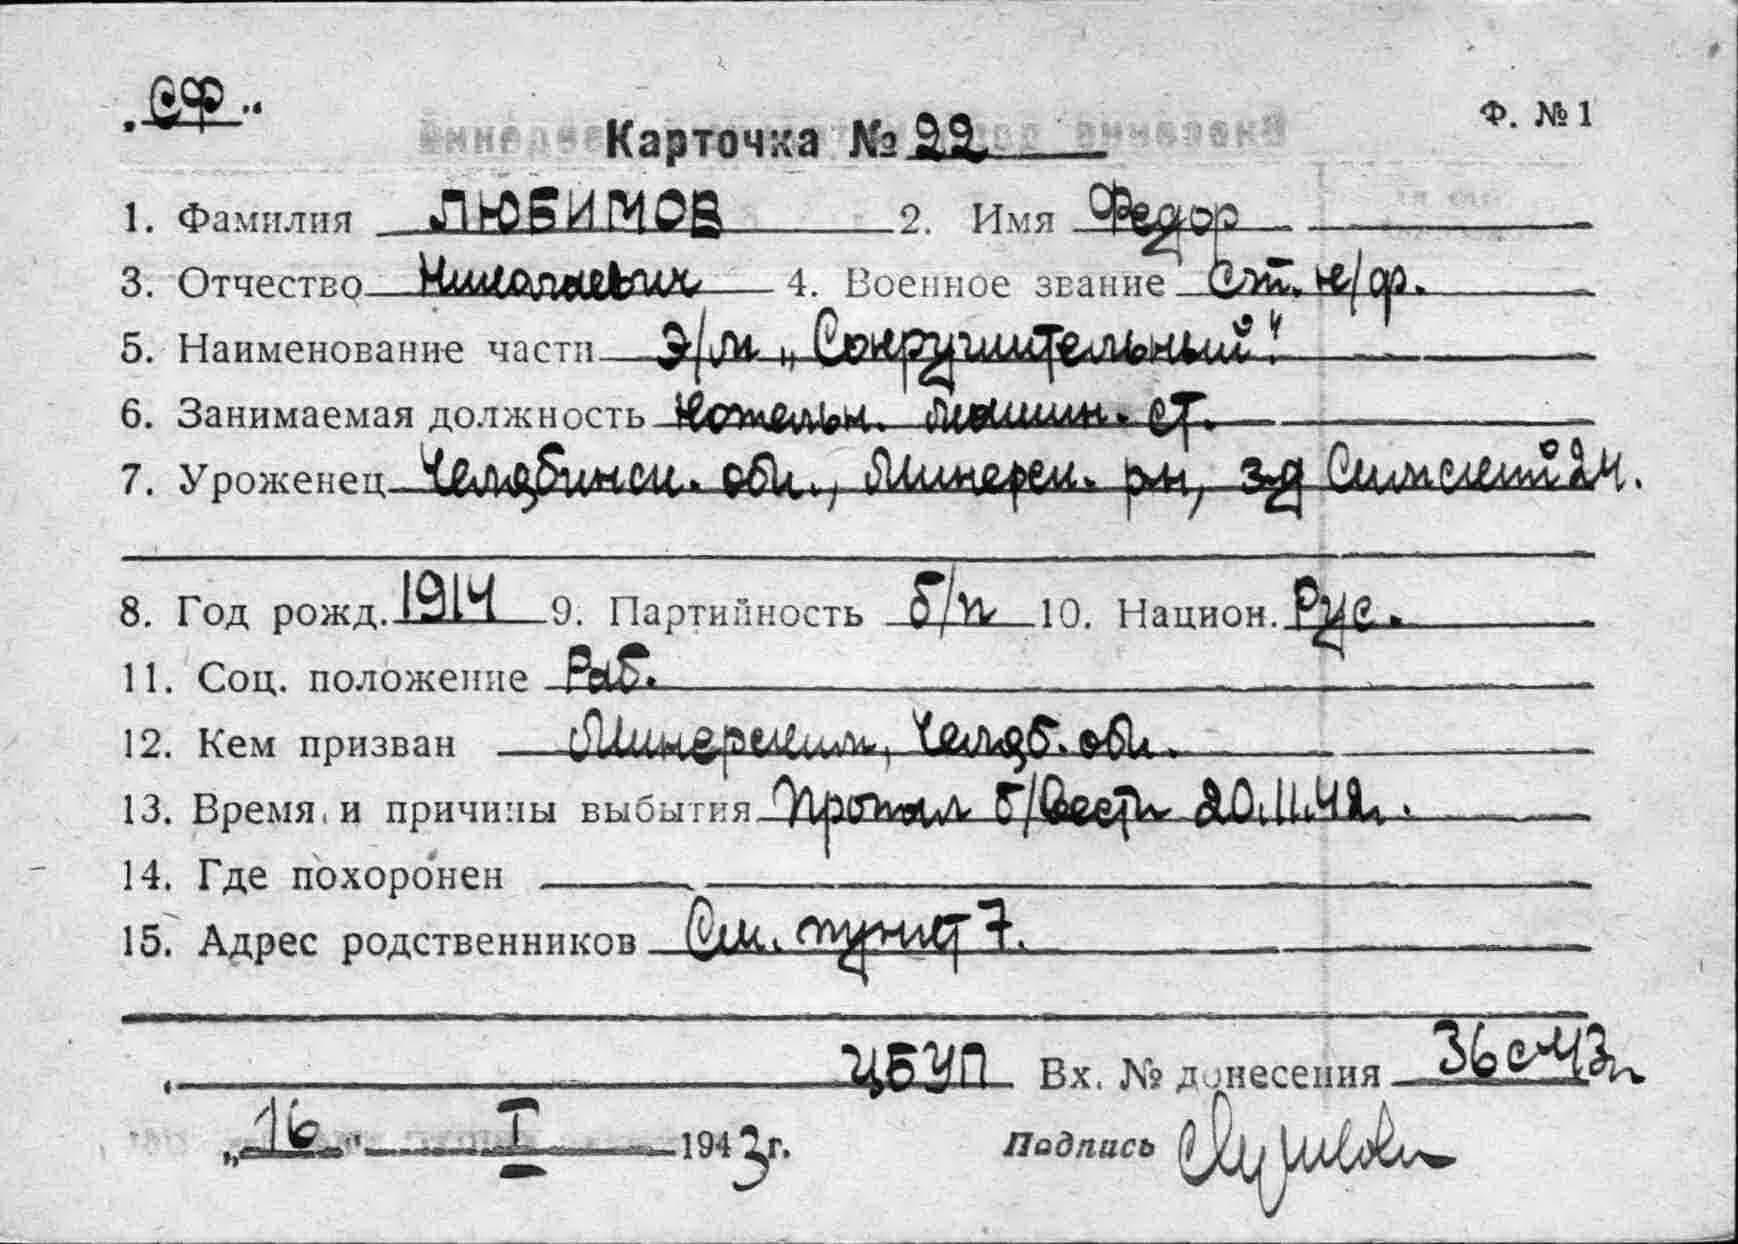 „СФ“
Ф. № 1
Карточка № 22
1. Фамилия ЛЮБИМОВ 2. Имя Федор
3. Отчество Николаевич 4. Военное звание Ст. к/ф.
5. Наименование части Э/м „Сокрушительный“.
6. Занимаемая должность Котельн. машин. ст.
7. Уроженец Челябинск. обл., Минерск. р-н, з-д 24.
8. Год рожд. 1914 9. Партийность б/п 10. Национ. Рус.
11. Соц. положение Раб.
12. Кем призван Минерским, Челяб. обл.
13. Время и причины выбытия Пропал б/вести 20.11.42г.
14. Где похоронен
15. Адрес родственников См. пункт 7.
ЦБУП Вх. № донесения 36с-43г
„16“ I 1943 г. Подпись